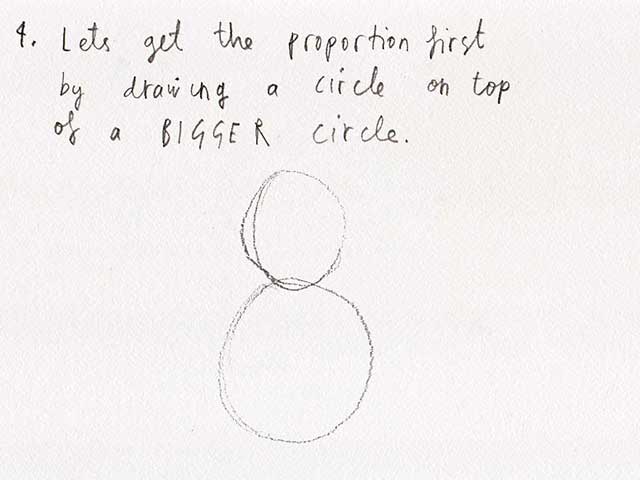 4. Lets get the proportion first
by drawing a circle on top
of a BIGGER circle.